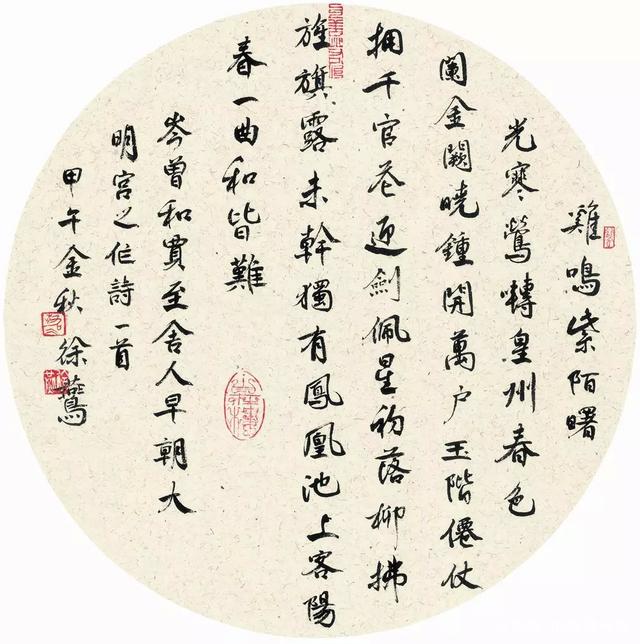 雞鳴紫陌曙
光寒鶯轉皇州春色
闌金闕曉鍾開萬戶玉階僊仗
拥千官花迎劍佩星初落柳拂
旌旗露未幹獨有鳳凰池上客陽
春一曲和皆難
岑曾和賈至舍人早朝大
明宮之作詩一首
甲午金秋徐鷰